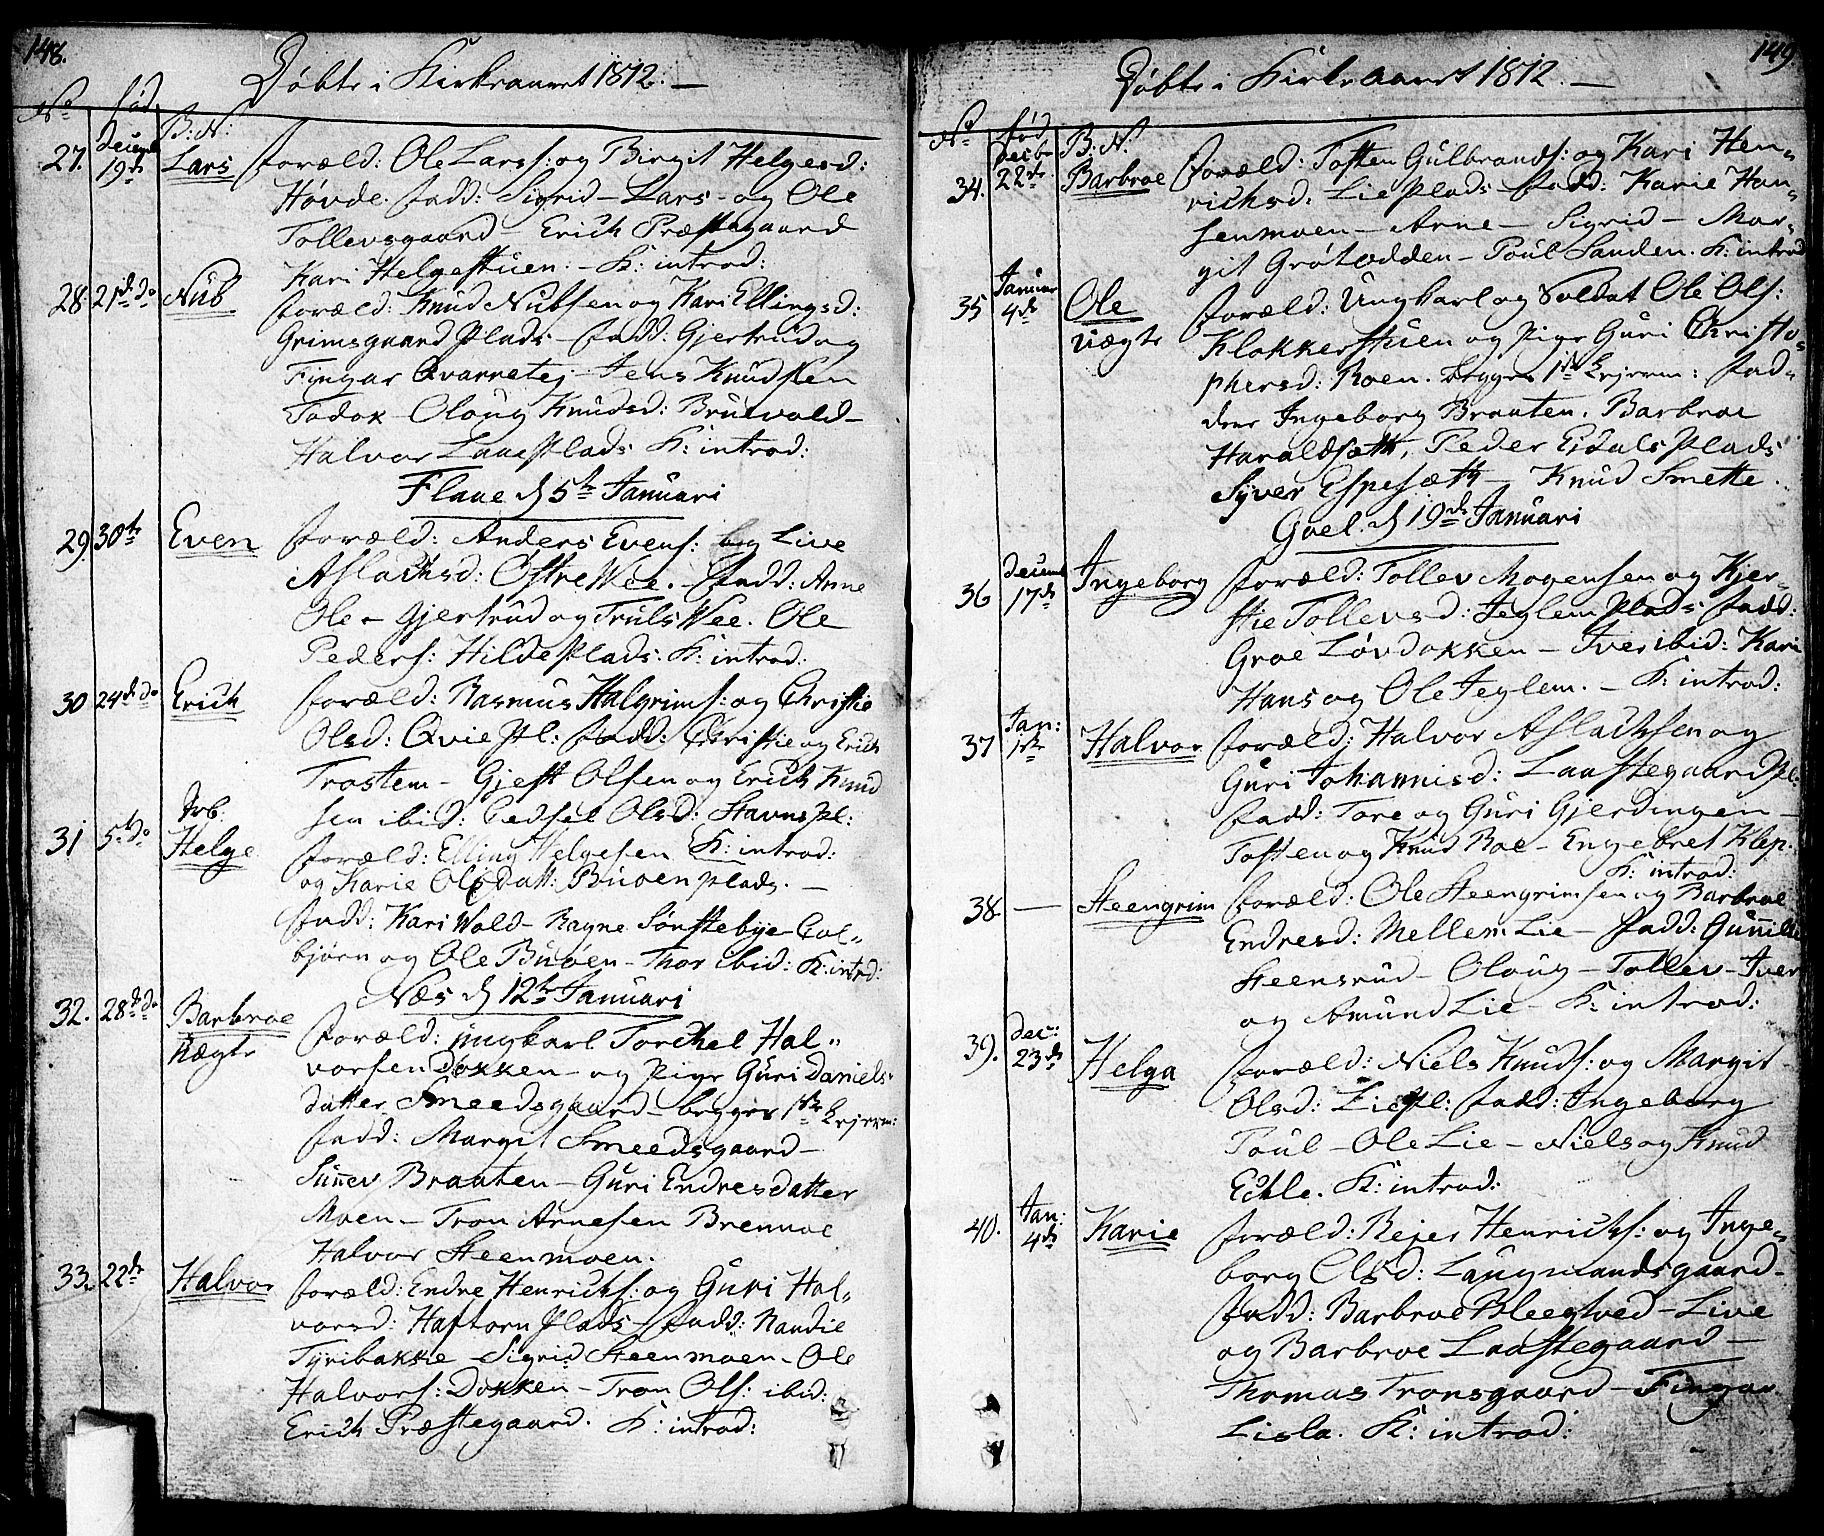 148.
Døbte i Kirkeaaret 1812. —
No. fød B: N:
27. Decemb 19de Lars foræld: Ole Larss: og Birgit Helgesd:
Høvde. fadd: Sigrid - Lars - og Ole
Tollevsgaard - Erich Præstegaard
Kari Helgestuen. - K: introd:
28 21de do Nub foræld: Knud Nubsen og Kari Ellingsd:
Grimsgaard Plads - fadd: Gjertrud og
Fingar Qvarnetej - Jens Knudsen
Todok - Oloug Knudsd: Bruvold -
Halvor Laaesplads K: introd:
Flaae d 5te Januari
29. 30te Even foræld: Anders Evens: og Live
Aslachsd: Østre Wee. - fadd: Anne
Ole - Gjertrud og Truls Wee. Ole
Peders: Hilde Plads. K: introd:
30 24de do Erich foræld: Rasmus Halgrims: og Christie
Olsd: Qvie Pl: fadd: Christie og Erich
Trostem - Gjest Olsen og Erich Knud
sen ibid: Pedsel Olsd: Stavns pl:
31 5te do Helge foræld: Elling Helgesen K: introd:
og Karie Olsdatt: Buøen plads. —
fadd: Kari Wold - Ragne Sønstebye - Col-
bjørn og Ole Buøen - Thor ibid: K: introd:
Næs d 12te Januari
32. 28de do Barbroe foræld: ungkarl Torchel Hal-
Uægte vorsen Dokken - og Pige Guri Daniels-
datter Smeedsgaard - begges 1ste Lejerm:
fadd: Margit Smeedsgaard -
Sunnev Braaten - Guri Endresdatter
Moen - Tron Arnesen Brennoe
Halvor Steenmoen.
33. 22de Halvor foræld: Endre Henrichs: og Guri Hal-
vorsd: Haftorn Plads - fadd: Randie
Tyribakke - Sigrid Steenmoen - Ole
Halvors: Dokken - Tron Ols: ibid:
Erich Præstegaard. K: introd:
149
Døbte i Kirkeaaret 1812. —
No. fød B: N:
34. Decbr 22de Barbroe foræld: Tosten Gulbrands: og Kari Hen-
richsd: Lie Plads - fadd: Karie Han-
senmoen - Arne - Sigrid - Mar-
git Grøtødden - Poul Sanden. K: introd
35 Januar 4de Ole foræld: Ungkarl og Soldat Ole Ols:
Uægte Klokkerstuen og Pige Guri Christo-
phersd: Roen. begges 1ste Lejerm: fad-
dere Ingeborg Braaten. Barbroe
Haraldsætt, Peder Eidals Plads
Syver Espesætt - Knud Smette.
Goel. d 19de Januari
36 Decemb 17de Ingeborg foræld: Tollev Mogensen og Kjer-
stie Tollevsd: Jeglem Plads fadd:
Groe Løvdokken - Iver ibid: Kari
Hans og Ole Jeglem. - K: introd:
37 Jan: 1ste Halvor foræld: Halvor Aslachsen og
Guri Johannisd: Laastegaard Pl:
fadd: Tore og Guri Gjerdingen -
Tosten og Knud Roe - Engebret Klep.
K: introd:
38 — Steengrim foræld: Ole Steengrimsen og Barbroe
Endresd: Mellem Lie - fadd: Gunnild
Steensrud - Oloug - Tollev - Iver
og Amund Lie - K: introd:
39. Dec: 23de Helga foræld: Niels Knuds: og Margit
Olsd: Lie pl: fadd: Ingeborg
Poul - Ole Lie - Niels og Knud
Echle. K: introd:
40. Jan: 4de Karie foræld: Rejer Henrichs: og Inge-
borg Olsd: Laugmandsgaard -
fadd: Barbroe Bleegtved - Live
og Barbroe Laastegaard -
Thomas Tronsgaard - Fingar
Lisla. K: introd: